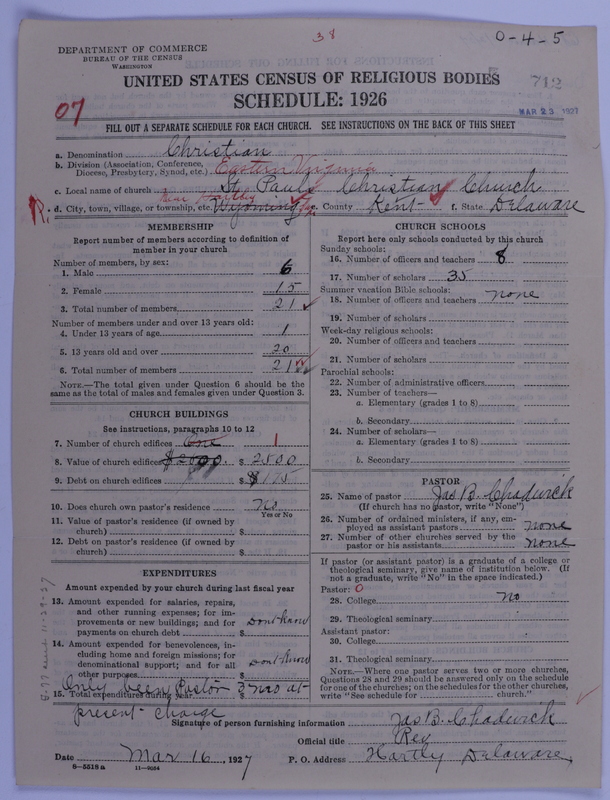 38
0-4-5
DEPARTMENT OF COMMERCE
BUREAU OF THE CENSUS
WASHINGTON
UNITED STATES CENSUS OF RELIGIOUS BODIES
712
SCHEDULE: 1926
07
MAR 23 1927
FILL OUT A SEPARATE SCHEDULE FOR EACH CHURCH. SEE INSTRUCTIONS ON THE BACK OF THIS SHEET
a. Denomination Christian
b. Division (Association, Conference, Diocese, Presbytery, Synod, etc.) Eastern Virginia
c. Local name of church St Pauls Christian Church
near Hartley
R.
d. City, town, village, or township, etc. Wyoming e. County Kent f. State Delaware
MEMBERSHIP
Report number of members according to definition of
member in your church
Number of members, by sex:
1. Male 6
2. Female 15
3. Total number of members 21
Number of members under and over 13 years old:
4. Under 13 years of age 1
5. 13 years old and over 20
6. Total number of members 21
NOTE.—The total given under Question 6 should be the
same as the total of males and females given under Question 3.
CHURCH BUILDINGS
See instructions, paragraphs 10 to 12
7. Number of church edifices One 1
8. Value of church edifices $2500 $ 2500
9. Debt on church edifices $ $175
10. Does church own pastor's residence No
Yes or No
11. Value of pastor's residence (if owned by
church) $
12. Debt on pastor's residence (if owned by
church) $
EXPENDITURES
Amount expended by your church during last fiscal year
13. Amount expended for salaries, repairs,
and other running expenses; for im-
provements or new buildings; and for
payments on church debt $ Dont know
14. Amount expended for benevolences, in-
cluding home and foreign missions; for
denominational support; and for all
other purposes $ Dont know
15. Total expenditures during year $
Only been Pastor 3 mos at
present charge
CHURCH SCHOOLS
Report here only schools conducted by this church
Sunday schools:
16. Number of officers and teachers 8
17. Number of scholars 35
Summer vacation Bible schools:
18. Number of officers and teachers none
19. Number of scholars
Week-day religious schools:
20. Number of officers and teachers
21. Number of scholars
Parochial schools:
22. Number of administrative officers
23. Number of teachers—
a. Elementary (grades 1 to 8)
b. Secondary
24. Number of scholars—
a. Elementary (grades 1 to 8)
b. Secondary
PASTOR
25. Name of pastor Jas B. Chadwick
(If church has no pastor, write "None")
26. Number of ordained ministers, if any, em-
ployed as assistant pastors none
27. Number of other churches served by the
pastor or his assistants none
If pastor (or assistant pastor) is a graduate of a college or
theological seminary, give name of institution below. (If
not a graduate, write "No" in the space indicated.)
Pastor: 0
28. College no
29. Theological seminary
Assistant pastor:
30. College
31. Theological seminary
NOTE.—Where one pastor serves two or more churches,
Questions 28 and 29 should be answered only on the schedule
for one of the churches; on the schedules for the other churches,
write "See schedule for church."
Signature of person furnishing information Jas B. Chadwick
Official title Rev
Date Mar 16, 1927 P. O. Address Hartly Delaware
8-5518a 11-9054